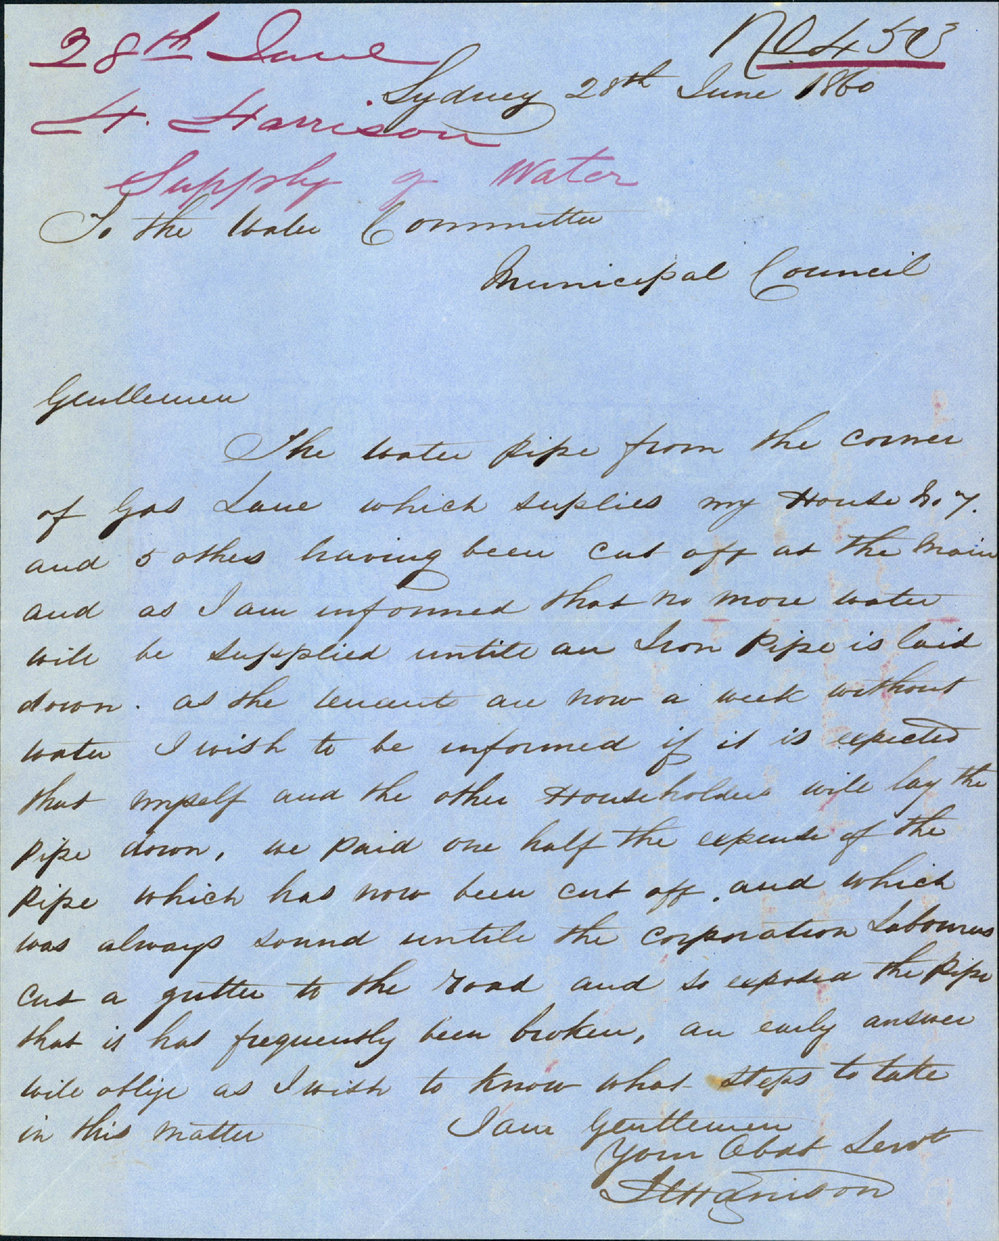 28th June
No 453
Sydney 28th June 1860
H. Harrison
Supply of Water
To the Water Committee
Municipal Council
Gentlemen
The water pipe from the corner
of Gas Lane which suplies my House No 7.
and 5 othes having been cut off at the main
and as I am informed that no more water
will be supplied untill an Iron Pipe is laid
down. as the tenant are now a week without
water I wish to be informed if it is expected
that myself and the other Householders will lay the
pipe down, we paid one half the expense of the
pipe which has now been cut off. and which
was always sound untill the corporation Labourers
cut a gutter to the road and so exposed the pipe
that it has frequently been broken, an early answer
will oblige as I wish to know what steps to take
in this matter
I am Gentlemen
Your Obdt Servt
Harrison